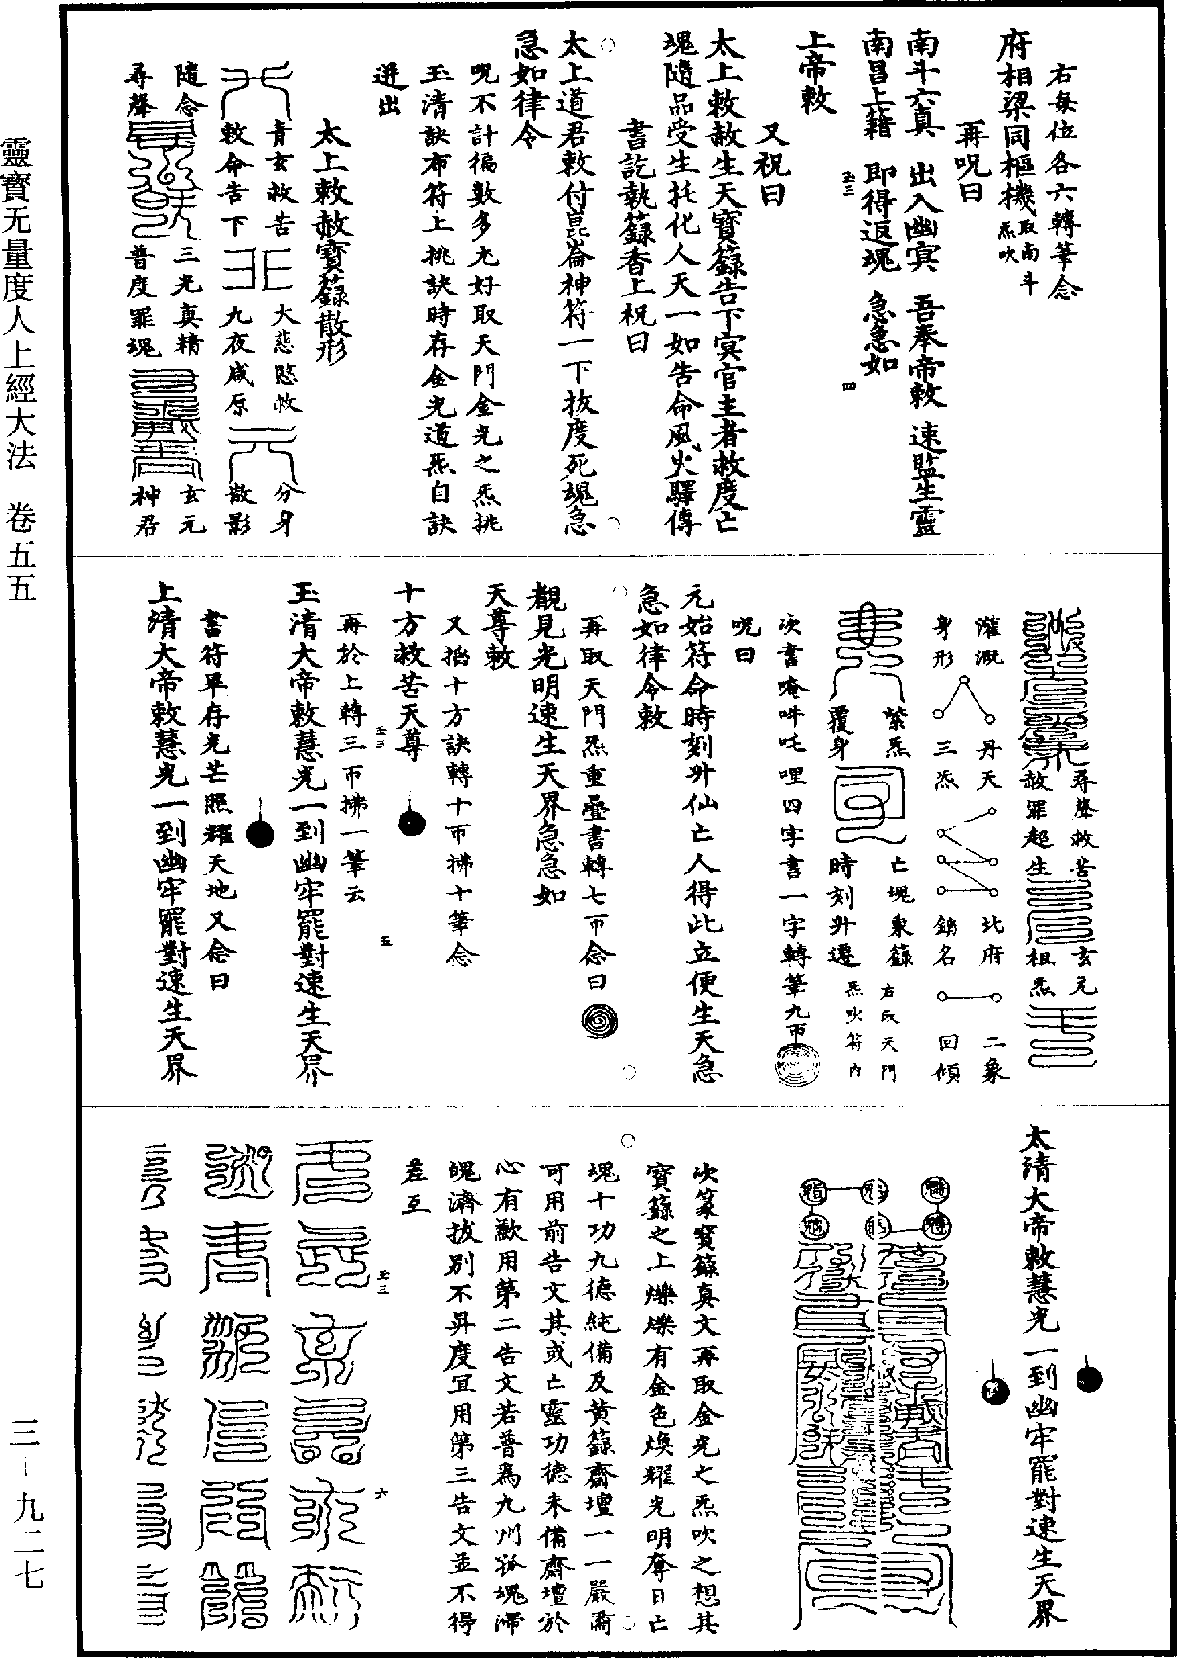 右每位各六轉筆念
府相梁同樞機取南斗炁吹
再呪曰
南斗六真　出入幽冥　吾奉帝敕　速監生靈
南昌上籍　即得返魂　急急如
上帝敕
又祝曰
太上敕赦生天寶籙告下冥官主者救度亡
魂隨品受生托化人天一如告命風火驛傳
書訖執籙香上祝曰
太上道君敕付崑崙神符一下拔度死魂急
急如律令
呪不計徧數多尤好取天門金光之炁挑
玉清訣布符上挑訣時存金光道炁自訣
迸出
太上敕赦寶籙散形
青玄救苦　大慈愍救　分身
敕命告下　九夜咸原　散影
隨念　三光真精　玄元
尋聲　普度罪魂　神君
尋聲救苦　玄元
赦罪超生　祖炁
灌溉　丹天　北府　二象
身形　三炁　錦名　回傾
紫炁　亡魂乘籙　右取天門
覆身　時刻升遷　炁吹符內
次書唵吽吒哩四字書一字轉筆九帀
呪曰
元始符命時刻升仙亡人得此立便生天急
急如律令敕
再取天門炁重疊書轉七帀念曰
覩見光明速生天界急急如
天尊敕
又掐十方訣轉十帀拂十筆念
十方救苦天尊
再於上轉三帀拂一筆云
玉清大帝敕慧光一到幽牢罷對速生天界
書符畢存光芒照耀天地又念曰
上清大帝敕慧光一到幽牢罷對速生天界
太清大帝敕慧光一到幽牢罷對速生天界
次篆寶籙真文再取金光之炁吹之想其
寶籙之上爍爍有金色煥耀光明奪日亡
魂十功九德純備及黃籙齋壇一一嚴肅
可用前告文其或亡靈功德未備齋壇於
心有歉用第二告文若普為九州孤魂滯
魄濟拔別不昇度宜用第三告文並不得
差互
靈寶无量度人上經大法　卷五五
三－九二七